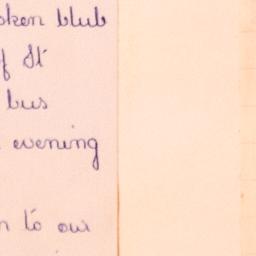 oken blub
of It
bus
evening
n to our